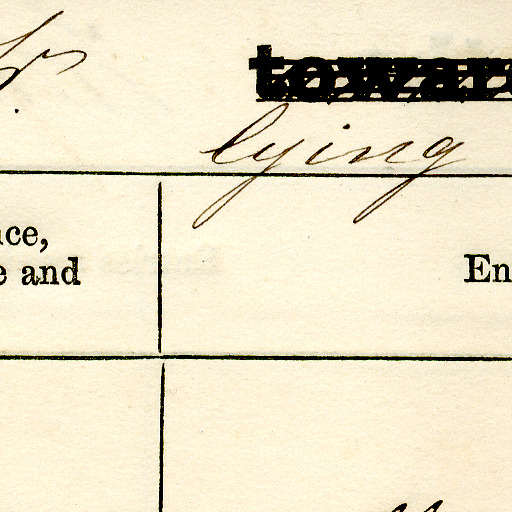 towar
lying
ce,
e and
En